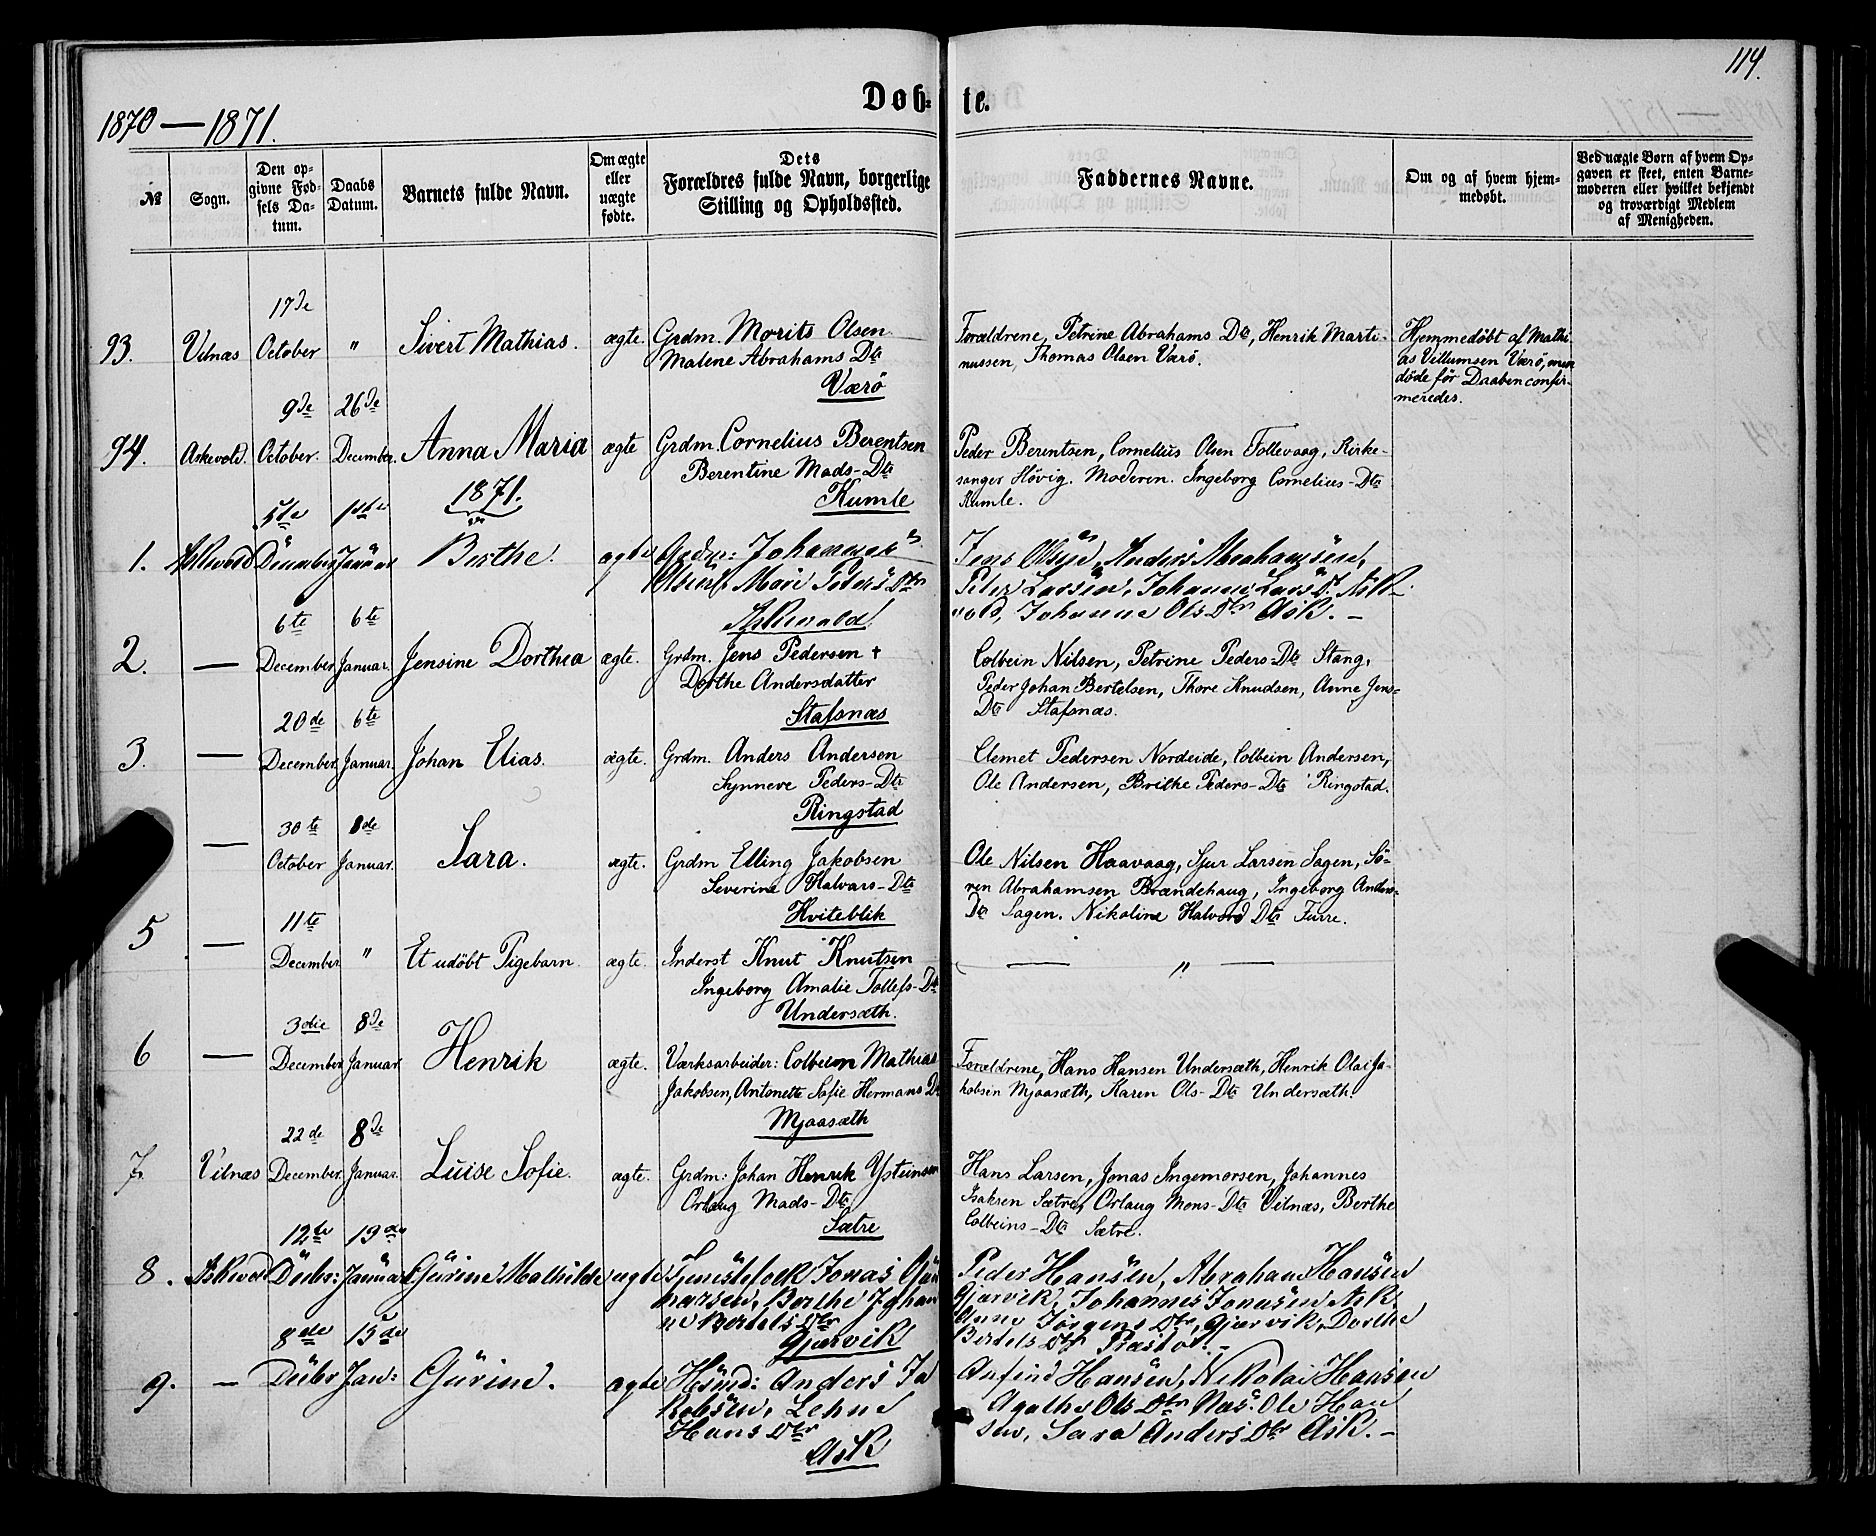 114.
Døb- te.
1870 — 1871.
№
Sogn.
Den op-
givne Fød-
sels Da-
tum.
Daabs
Datum.
Barnets fulde Navn.
Om ægte
eller
uægte
fødte.
Dets
Forældres fulde Navn, borgerlige
Stilling og Opholdssted.
Faddernes Navne.
Om og af hvem hjem-
medøbt.
Ved uægte Børn af hvem Op-
gaven er skeet, enten Barne-
moderen eller hvilket bekjendt
og troværdigt Medlem
af Menigheden.
17de
93. Vilnæs October " Sivert Mathias. ægte. Grdm. Morits Olsen
Malene Abrahams Dtr
Værö
Forældrene, Petrine Abrahams Dtr, Henrik Marti-
nussen, Thomas Olsen Værö.
Hjemmedøbt af Mathi-
as Villumsen Værö, men
döde för Daaben confir-
meredes.
9de 26de
94. Askevold. October. December. Anna Maria ægte Grdm. Cornelius Berentsen
Berentine Mads-Dtr
Kumle
Peder Berentsen, Cornelius Olsen Follevaag, Kirke-
sanger Hövig. Moderen. Ingeborg Cornelius-Dtr
Kumle.
1871.
5te 1ste
1. Askevold December Januar Berthe. ægte Grdm: Johannes
Olsen Peders Dtr
Askevold
Jens Olsen, Anders Abrahamsen,
Peter Larsen, Johanne Lars D. Ask-
vold, Johanne Ols Dtr Ask. —
6te 6te
2. — December Januar. Jensine Dorthea ægte. Grdm. Jens Pedersen +
Dorthe Andersdatter
Stafsnæs
Colbein Nilsen, Petrine Peders-Dtr Stang,
Peder Johan Bertelsen, Thore Knudsen, Anne Jens-
Dtr Stafsnæs.
20de 6te
3. — December Januar. Johan Elias. ægte. Grdm. Anders Andersen
Synneve Peders-Dtr
Ringstad
Clemet Pedersen Nordeide, Colbein Andersen,
Ole Andersen, Brithe Peders-Dtr Ringstad.
30te 8de
— October Januar. Sara. ægte. Grdm Elling Jakobsen
Severine Halvars-Dtr
Kviteblik
Ole Nilsen Haavaag, Sjur Larsen Sagen, Sö-
ren Abrahamsen Brændehaug, Ingeborg Anders-
Dtr Sagen. Nikoline Halvord Dtr Furre.
11te
5 — December " Et udöbt Pigebarn ægte. Inderst Knut Knutsen
Ingeborg Amalie Tollefs-Dtr
Undersæth.
— " —
3die 8de
6 — December Januar Henrik ægte. Værksarbeider: Colbein Mathias
Jakobsen, Antonette Sofie Hermans Dtr
Mjaasæth
Forældrene, Hans Hansen Undersæth, Henrik Olai Ja-
kobsen Mjaasæth, Karen Ols-Dtr Undersæth.
22de 8de
7. Vilnæs December Januar. Luise Sofie. ægte. Grdm: Johan Henrik Ysteinsen
Orlaug Mads-Dtr
Sætre
Hans Larsen, Jonas Ingemorsen, Johannes
Isaksen Sætre, Orlaug Mons-Dtr Vilnæs, Berthe
Colbeins-Dtr Sætre.
12te 19de
8. Askevold Decbr: Januar Gurine Mathilde ægte Tjenestefolk Jonas Gun
narsen, Berthe Johan
ne Bertels Dtr
Gjærvik
Peder Hansen, Abraham Hansen
Gjærvik, Johannes Jonasen Ask.
Anne Jörgens Dtr, Gjærvik, Dorthe
Bertels Dtr
8de 15de
9. — Decbr Jan: Gurine. ægte Husmd: Anders Ja
kobsen, Lehne
Hans Dtr
Ask
Anfind Hansen, Nikolai Hansen
Agathe Ols Dtr Næs. Ole Han
sen, Sara Anders Dtr Ask. —